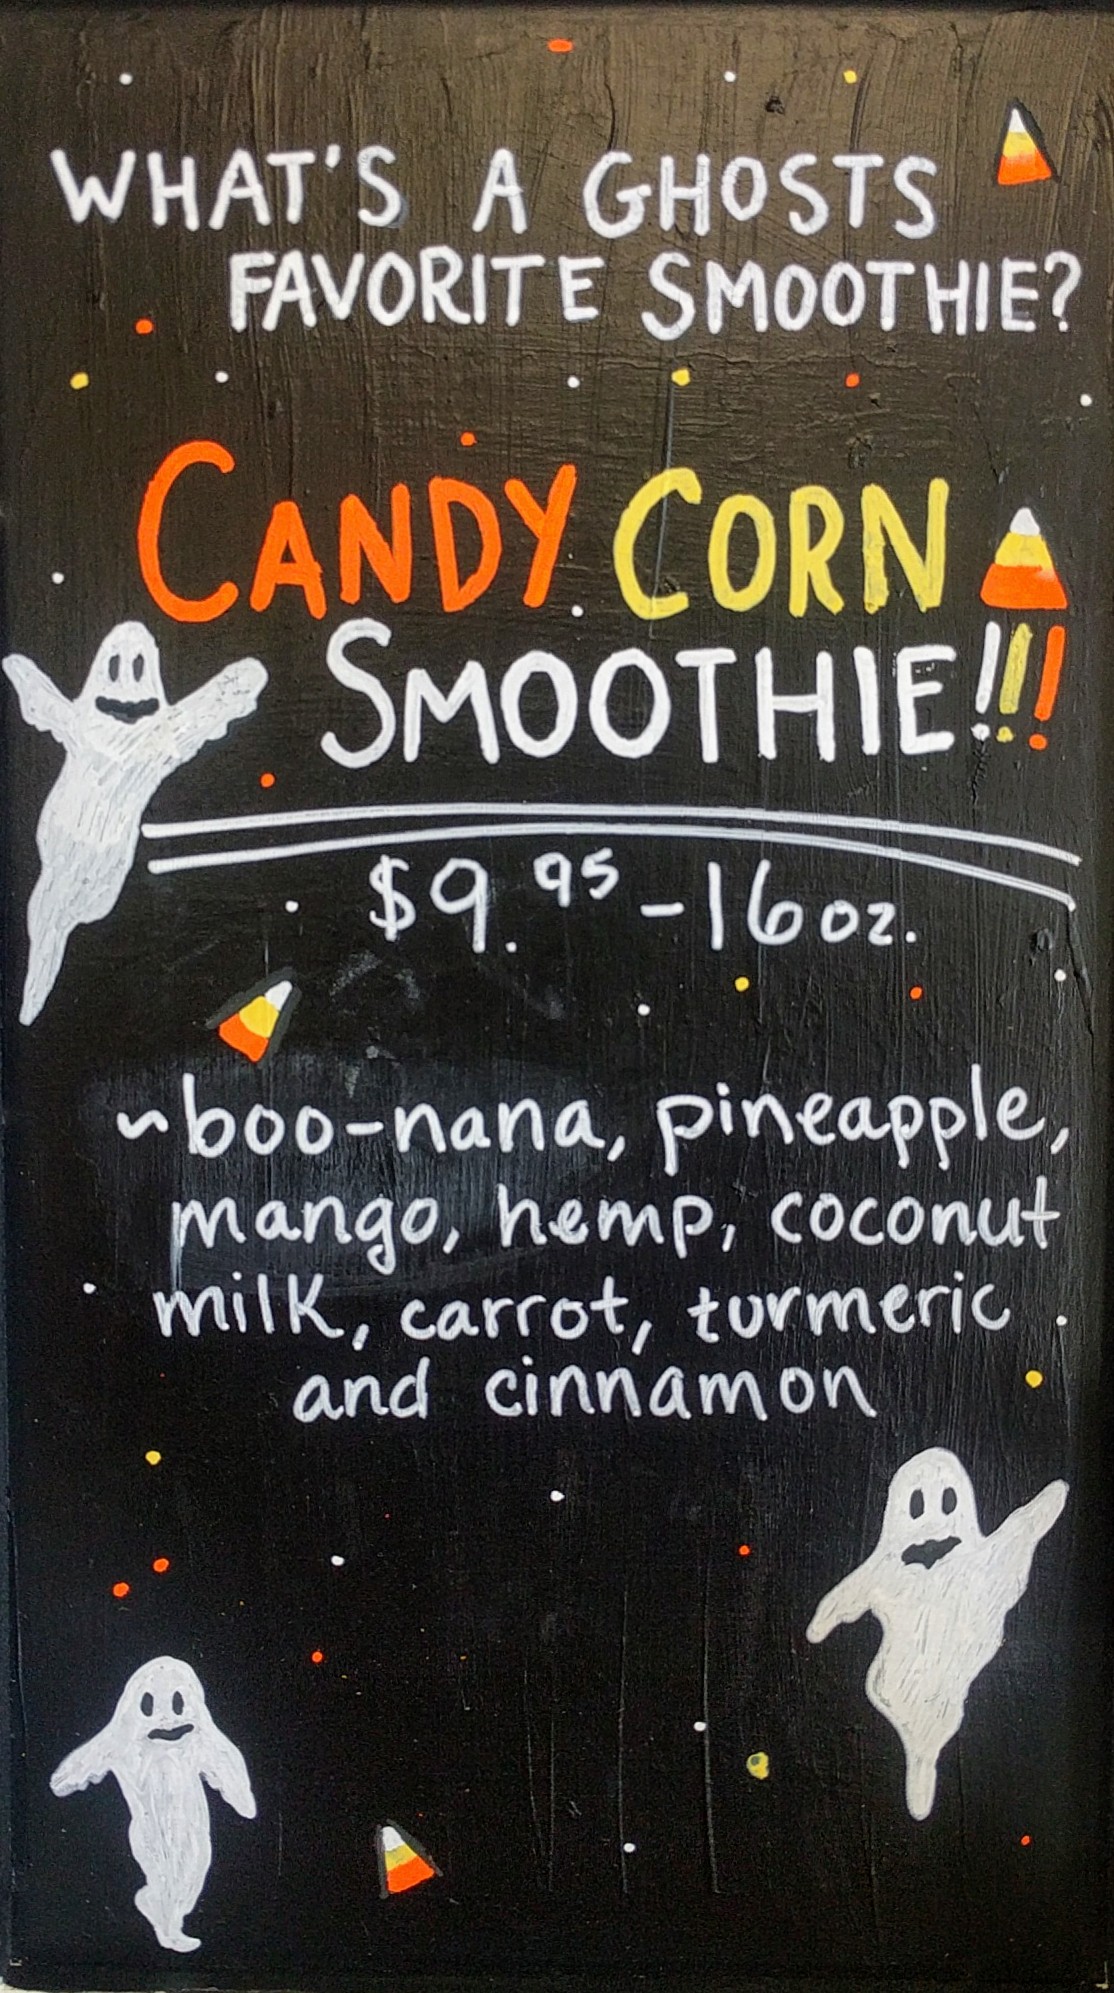 WHAT'S A GHOSTS
FAVORITE SMOOTHIE?
CANDY CORN
SMOOTHIE!!!
$9.95 - 16 oz.
~boo-nana, pineapple,
mango, hemp, coconut
milk, carrot, turmeric
and cinnamon